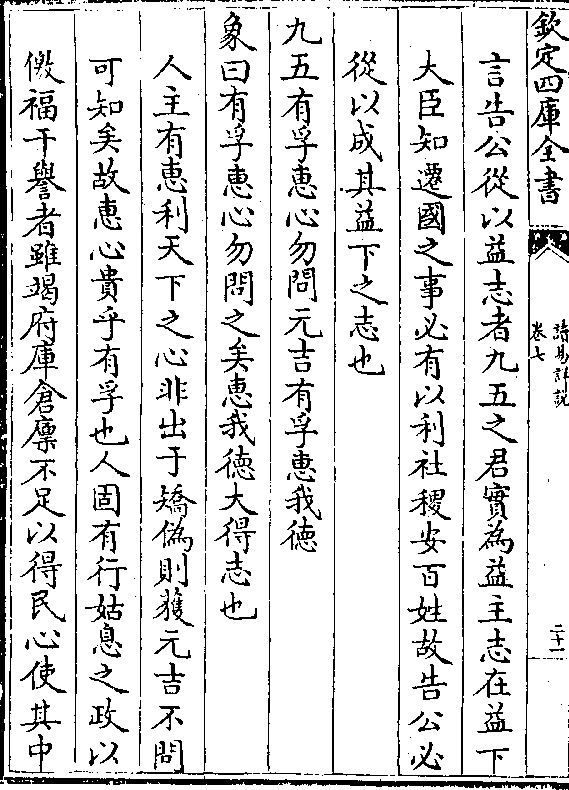 欽定四庫全書
讀易詳說
卷七
二十一
言告公從以益志者九五之君實為益主志在益下
大臣知遷國之事必有以利社稷安百姓故告公必
從以成其益下之志也
九五有孚惠心勿問元吉有孚惠我德
象曰有孚惠心勿問之矣惠我德大得志也
人主有惠利天下之心非出于矯偽則獲元吉不問
可知矣故惠心貴乎有孚也人固有行姑息之政以
儌福干譽者雖竭府庫倉廪不足以得民心使其中